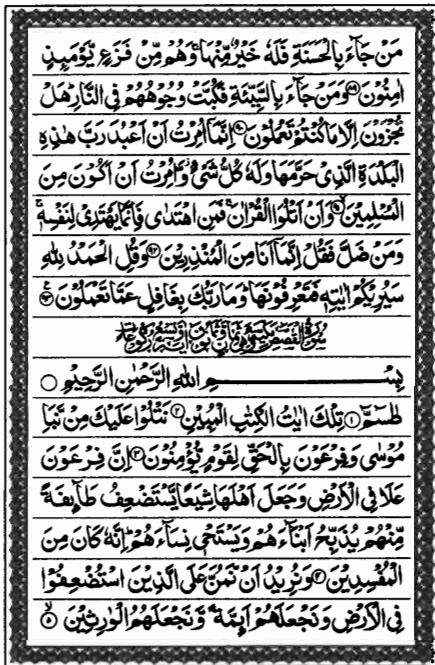 مَنْ جَآءَ بِالْحَسَنَةِ فَلَهٗ خَیْرٌ مِّنْهَا ۚ وَهُمْ مِّنْ فَزَعٍ یَّوْمَىِٕذٍ
اٰمِنُوْنَ ﴿۸۹﴾ وَمَنْ جَآءَ بِالسَّیِّئَةِ فَكُبَّتْ وُجُوْهُهُمْ فِی النَّارِ ؕ هَلْ
تُجْزَوْنَ اِلَّا مَا كُنْتُمْ تَعْمَلُوْنَ ﴿۹۰﴾ اِنَّمَاۤ اُمِرْتُ اَنْ اَعْبُدَ رَبَّ هٰذِهِ
الْبَلْدَةِ الَّذِیْ حَرَّمَهَا وَلَهٗ كُلُّ شَیْءٍ ؗ وَّاُمِرْتُ اَنْ اَكُوْنَ مِنَ
الْمُسْلِمِیْنَ ﴿۹۱﴾ وَاَنْ اَتْلُوَا الْقُرْاٰنَ ۚ فَمَنِ اهْتَدٰی فَاِنَّمَا یَهْتَدِیْ لِنَفْسِهٖ ۚ
وَمَنْ ضَلَّ فَقُلْ اِنَّمَاۤ اَنَا مِنَ الْمُنْذِرِیْنَ ﴿۹۲﴾ وَقُلِ الْحَمْدُ لِلّٰهِ
سَیُرِیْكُمْ اٰیٰتِهٖ فَتَعْرِفُوْنَهَا ؕ وَمَا رَبُّكَ بِغَافِلٍ عَمَّا تَعْمَلُوْنَ ﴿۹۳﴾
سُوْرَةُ الْقَصَصِ مَكِّیَّةٌ وَّهِیَ ثَمَانٌ وَّثَمَانُوْنَ اٰیَةً وَّتِسْعُ رُكُوْعَاتٍ
بِسْمِ اللّٰهِ الرَّحْمٰنِ الرَّحِیْمِ ○
طٰسٓمّٓ ﴿۱﴾ تِلْكَ اٰیٰتُ الْكِتٰبِ الْمُبِیْنِ ﴿۲﴾ نَتْلُوْا عَلَیْكَ مِنْ نَّبَاِ
مُوْسٰی وَفِرْعَوْنَ بِالْحَقِّ لِقَوْمٍ یُّؤْمِنُوْنَ ﴿۳﴾ اِنَّ فِرْعَوْنَ
عَلَا فِی الْاَرْضِ وَجَعَلَ اَهْلَهَا شِیَعًا یَّسْتَضْعِفُ طَآىِٕفَةً
مِّنْهُمْ یُذَبِّحُ اَبْنَآءَهُمْ وَیَسْتَحْیٖ نِسَآءَهُمْ ؕ اِنَّهٗ كَانَ مِنَ
الْمُفْسِدِیْنَ ﴿۴﴾ وَنُرِیْدُ اَنْ نَّمُنَّ عَلَی الَّذِیْنَ اسْتُضْعِفُوْا
فِی الْاَرْضِ وَنَجْعَلَهُمْ اَىِٕمَّةً وَّنَجْعَلَهُمُ الْوٰرِثِیْنَ ﴿۵﴾